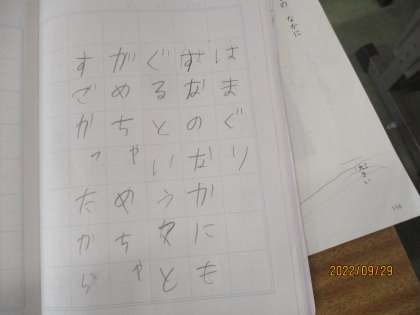 はまぐり
すなのなかにも
ぐるという と
がめちゃめちゃ
すざがったから
の なかに
2022/09/29